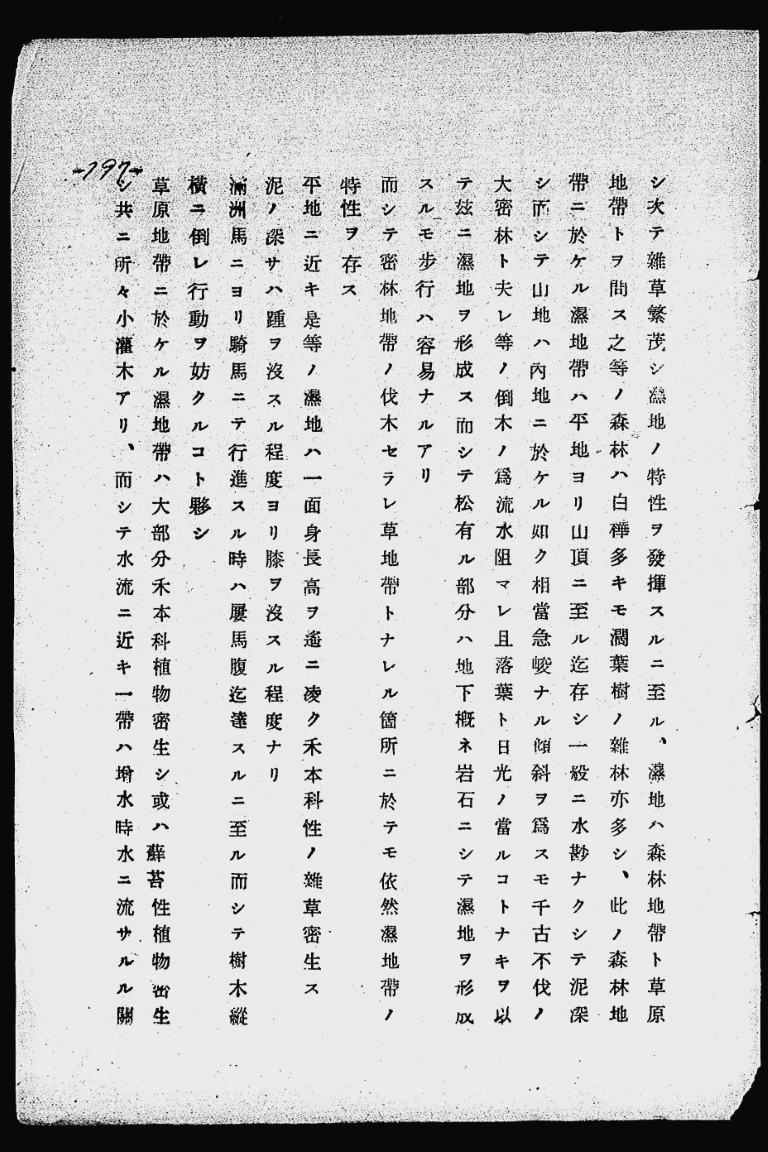 -197-
シ次テ雜草繁茂シ濕地ノ特性ヲ發揮スルニ至ル、濕地ハ森林地帶ト草原
地帶トヲ間ス之等ノ森林ハ白樺多キモ濶葉樹ノ雜林亦多シ、此ノ森林地
帶ニ於ケル濕地帶ハ平地ヨリ山頂ニ至ル迄存シ一般ニ水尠ナクシテ泥深
シ而シテ山地ハ內地ニ於ケル如ク相當急峻ナル傾斜ヲ爲スモ千古不伐ノ
大密林ト夫レ等ノ倒木ノ爲流水阻マレ且落葉ト日光ノ當ルコトナキヲ以
テ玆ニ濕地ヲ形成ス而シテ松有ル部分ハ地下槪ネ岩石ニシテ濕地ヲ形成
スルモ步行ハ容易ナルアリ
而シテ密林地帶ノ伐木セラレ草地帶トナレル箇所ニ於テモ依然濕地帶ノ
特性ヲ存ス
平地ニ近キ是等ノ濕地ハ一面身長高ヲ遙ニ凌ク禾本科性ノ雜草密生ス
泥ノ深サハ踵ヲ沒スル程度ヨリ膝ヲ沒スル程度ナリ
滿洲馬ニヨリ騎馬ニテ行進スル時ハ屢馬腹迄達スルニ至ル而シテ樹木縱
橫ニ倒レ行動ヲ妨クルコト夥シ
草原地帶ニ於ケル濕地帶ハ大部分禾本科植物密生シ或ハ蘚苔性植物密生
シ共ニ所々小灌木アリ、而シテ水流ニ近キ一帶ハ增水時水ニ流サルル關